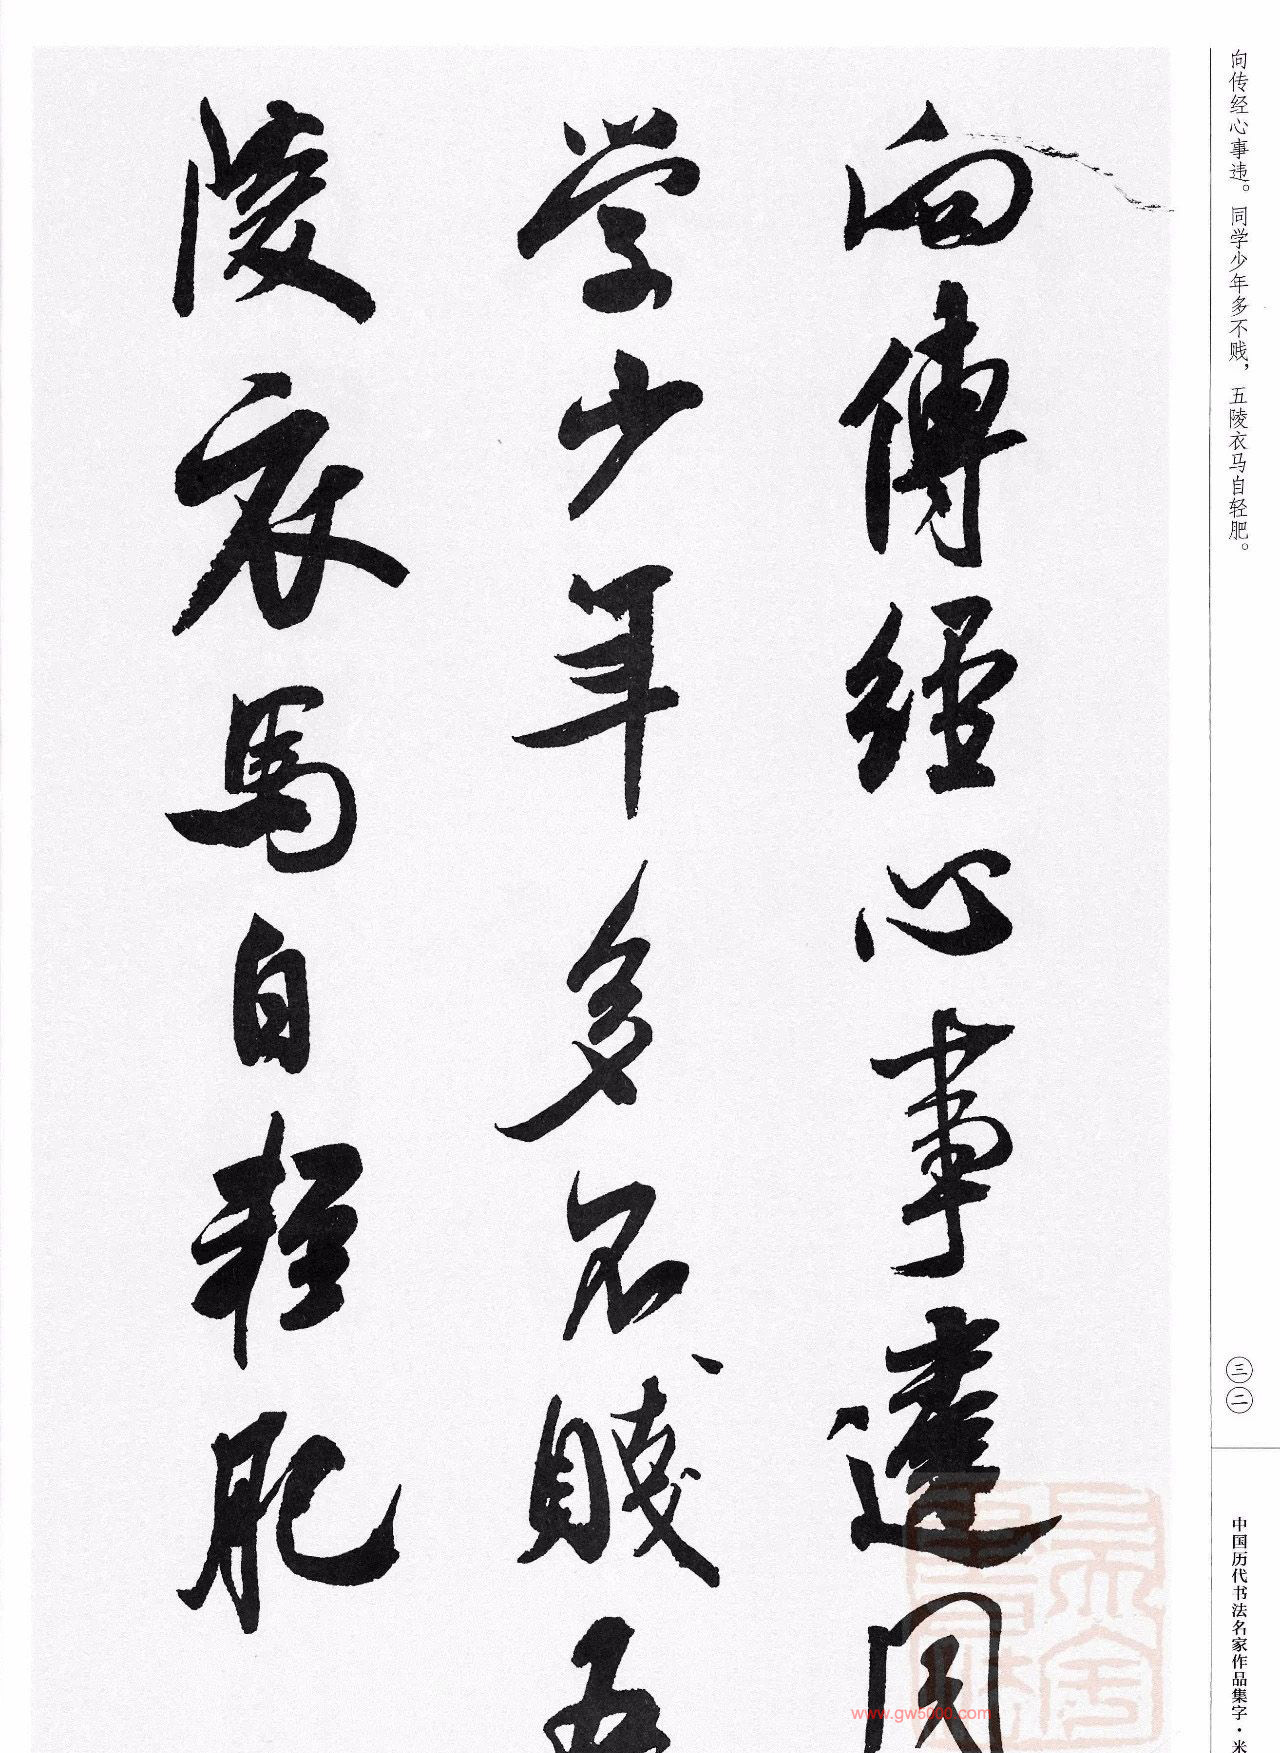 向传经心事违。同学少年多不贱，五陵衣马自轻肥。
三二
中国历代书法名家作品集字·米
向傳經心事違同
学少年多不賤五
陵衣馬自輕肥
www.gw5000.com